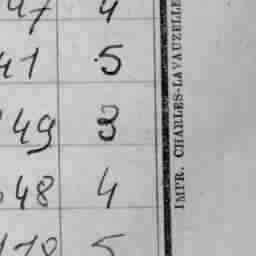 47 4
41 5
49 3
48 4
5
IMPR. CHARLES-LAVAUZELLE